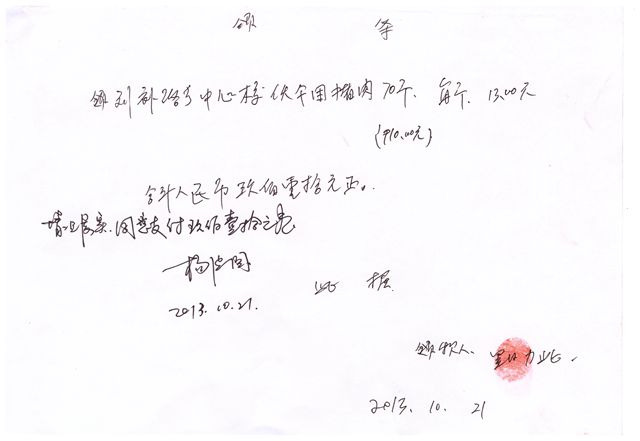 领 条
领到补 中心校伙 用猪肉70斤、每斤13.00元
(910.00元)
合计人民币玖佰壹拾元正。
情况属实.同意支付玖佰壹拾元
杨
2013.10.21.
此 据
领款人
2013. 10. 21